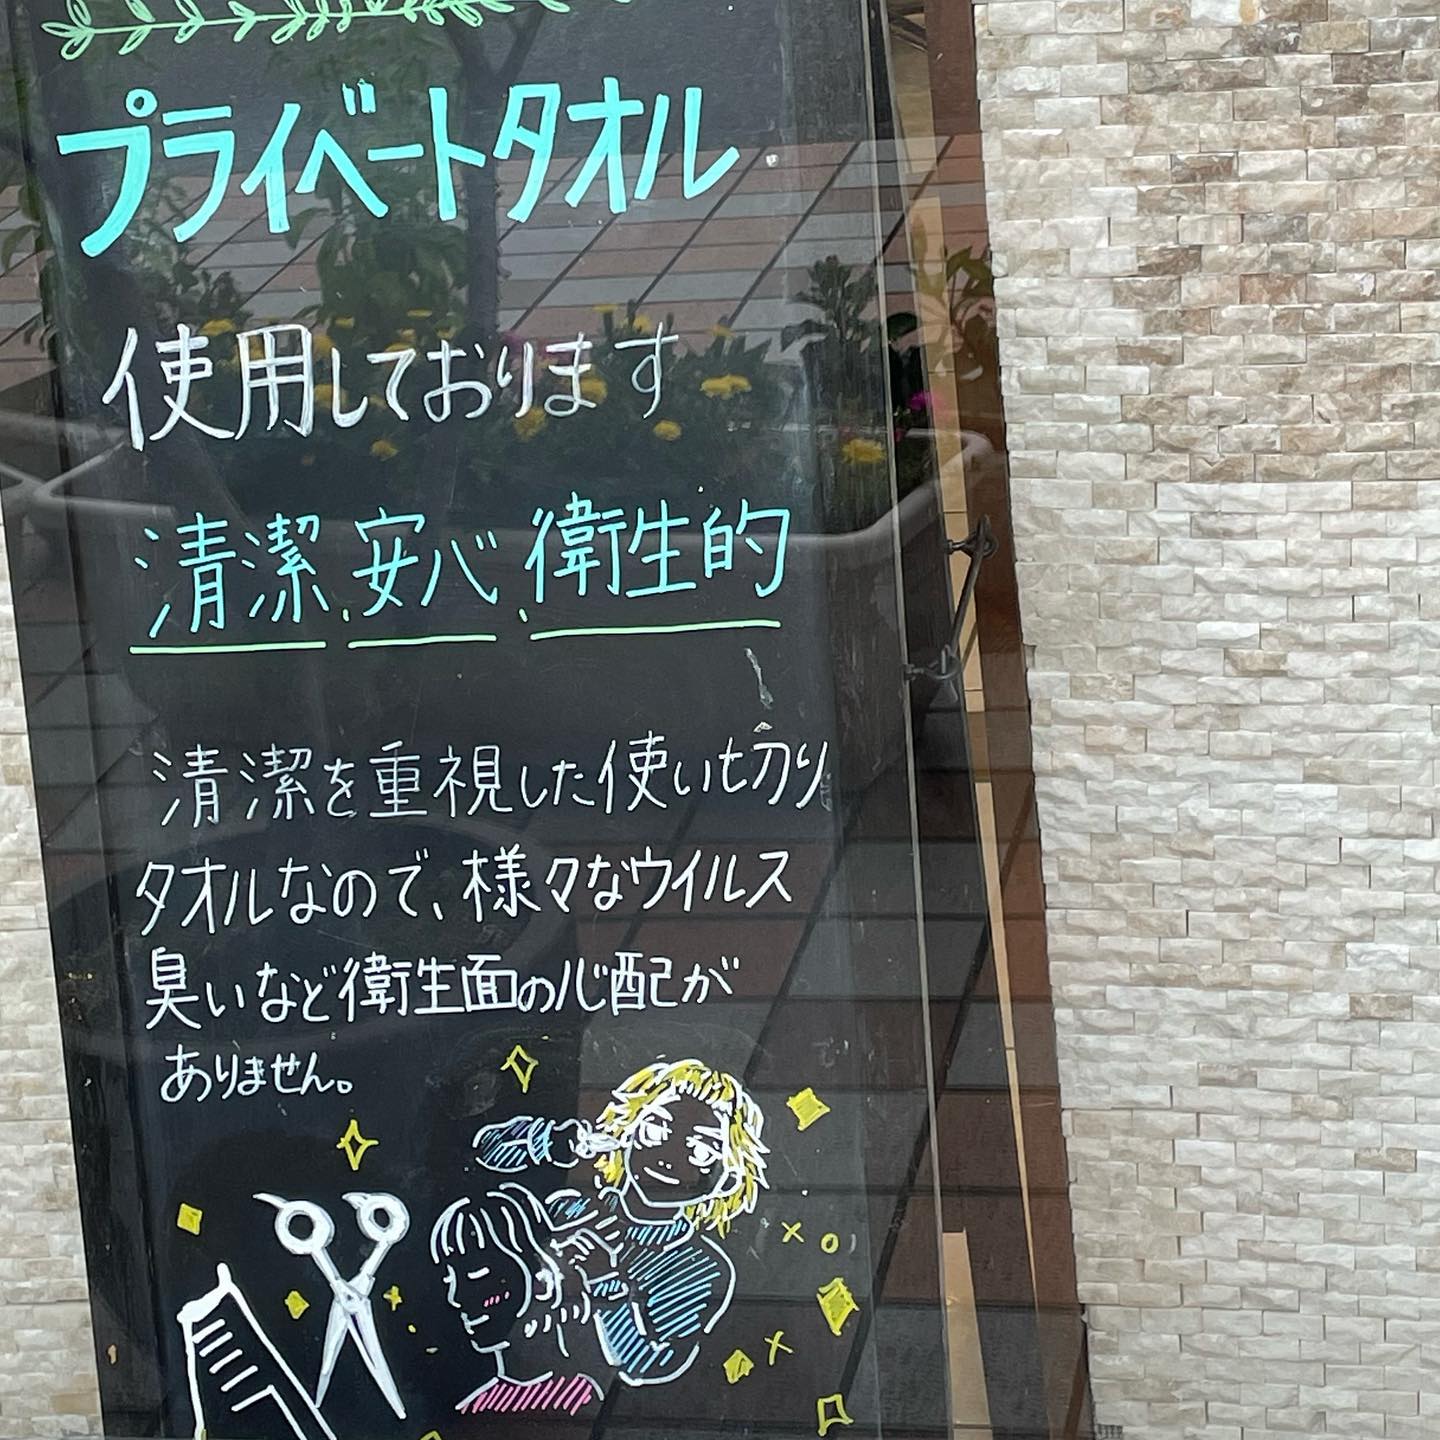 プライベートタオル
使用しております
清潔、安心、衛生的
清潔を重視した使い切り
タオルなので、様々なウイルス
臭いなど衛生面の心配が
ありません。